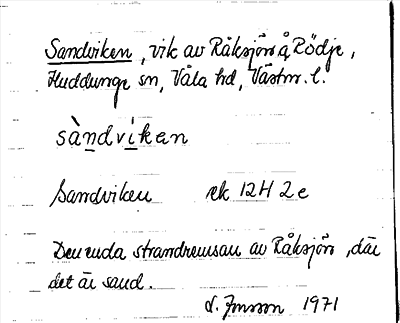 Sandviken, vik av Råksjön å Rödje,
Huddunge sn, Våla hd, Västm. l.
sàndviken
Sandviken ek 12H 2e
Den enda strandremsan av Råksjön, där
det är sand.
L. Jonsson 1971